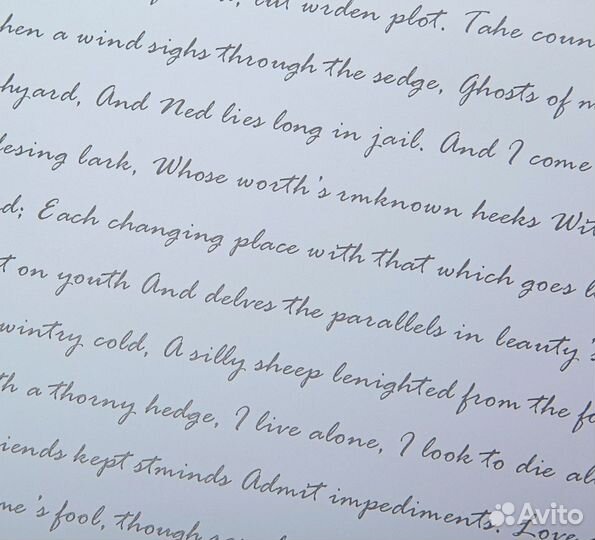 , but wrden plot. Take coun
hen a wind sighs through the sedge, Ghosts of m
hyard, And Ned lies long in jail. And I come
lesing lark, Whose worth's rmknown heeks Wit
d; Each changing place with that which goes l
t on youth And delves the parallels in leauty's
wintry cold, A silly sheep lenighted from the fo
th a thorny hedge, I live alone, I look to die al
iends kept stminds Admit impediments. Love
me's fool, though
Avito